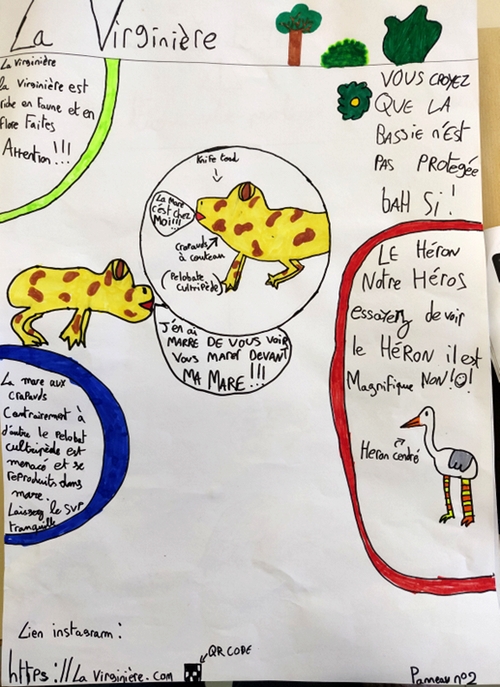 La Virginière
La Virginière
la Virginière est
riche en Faune et en
flore Faites
Attention !!!
VOUS CROYEZ
QUE LA
BASSIE n'EST
PAS PROTEGÉE
bAH Si !
Knife toad
La Mare
c'est chez
MOi !!!
Crapauds
à couteau
(Pelobate
cultripède)
J'en ai
MARRE DE VOUS VOIR
VOUS MARER DEVANT
MA MARE !!!
LE Héron
Notre Héros
essayez de voir
le HÉRON il est
Magnifique NON !?!
Heron cendré
La mare aux
crapauds
Contrairement à
d'autre le Pelobat
cultripède est
menacé et se
reproduits dans
mare.
Laissez le SVP
tranquille
Lien instagram :
https://La Virginière.com
QR CODE
Panneau n°2